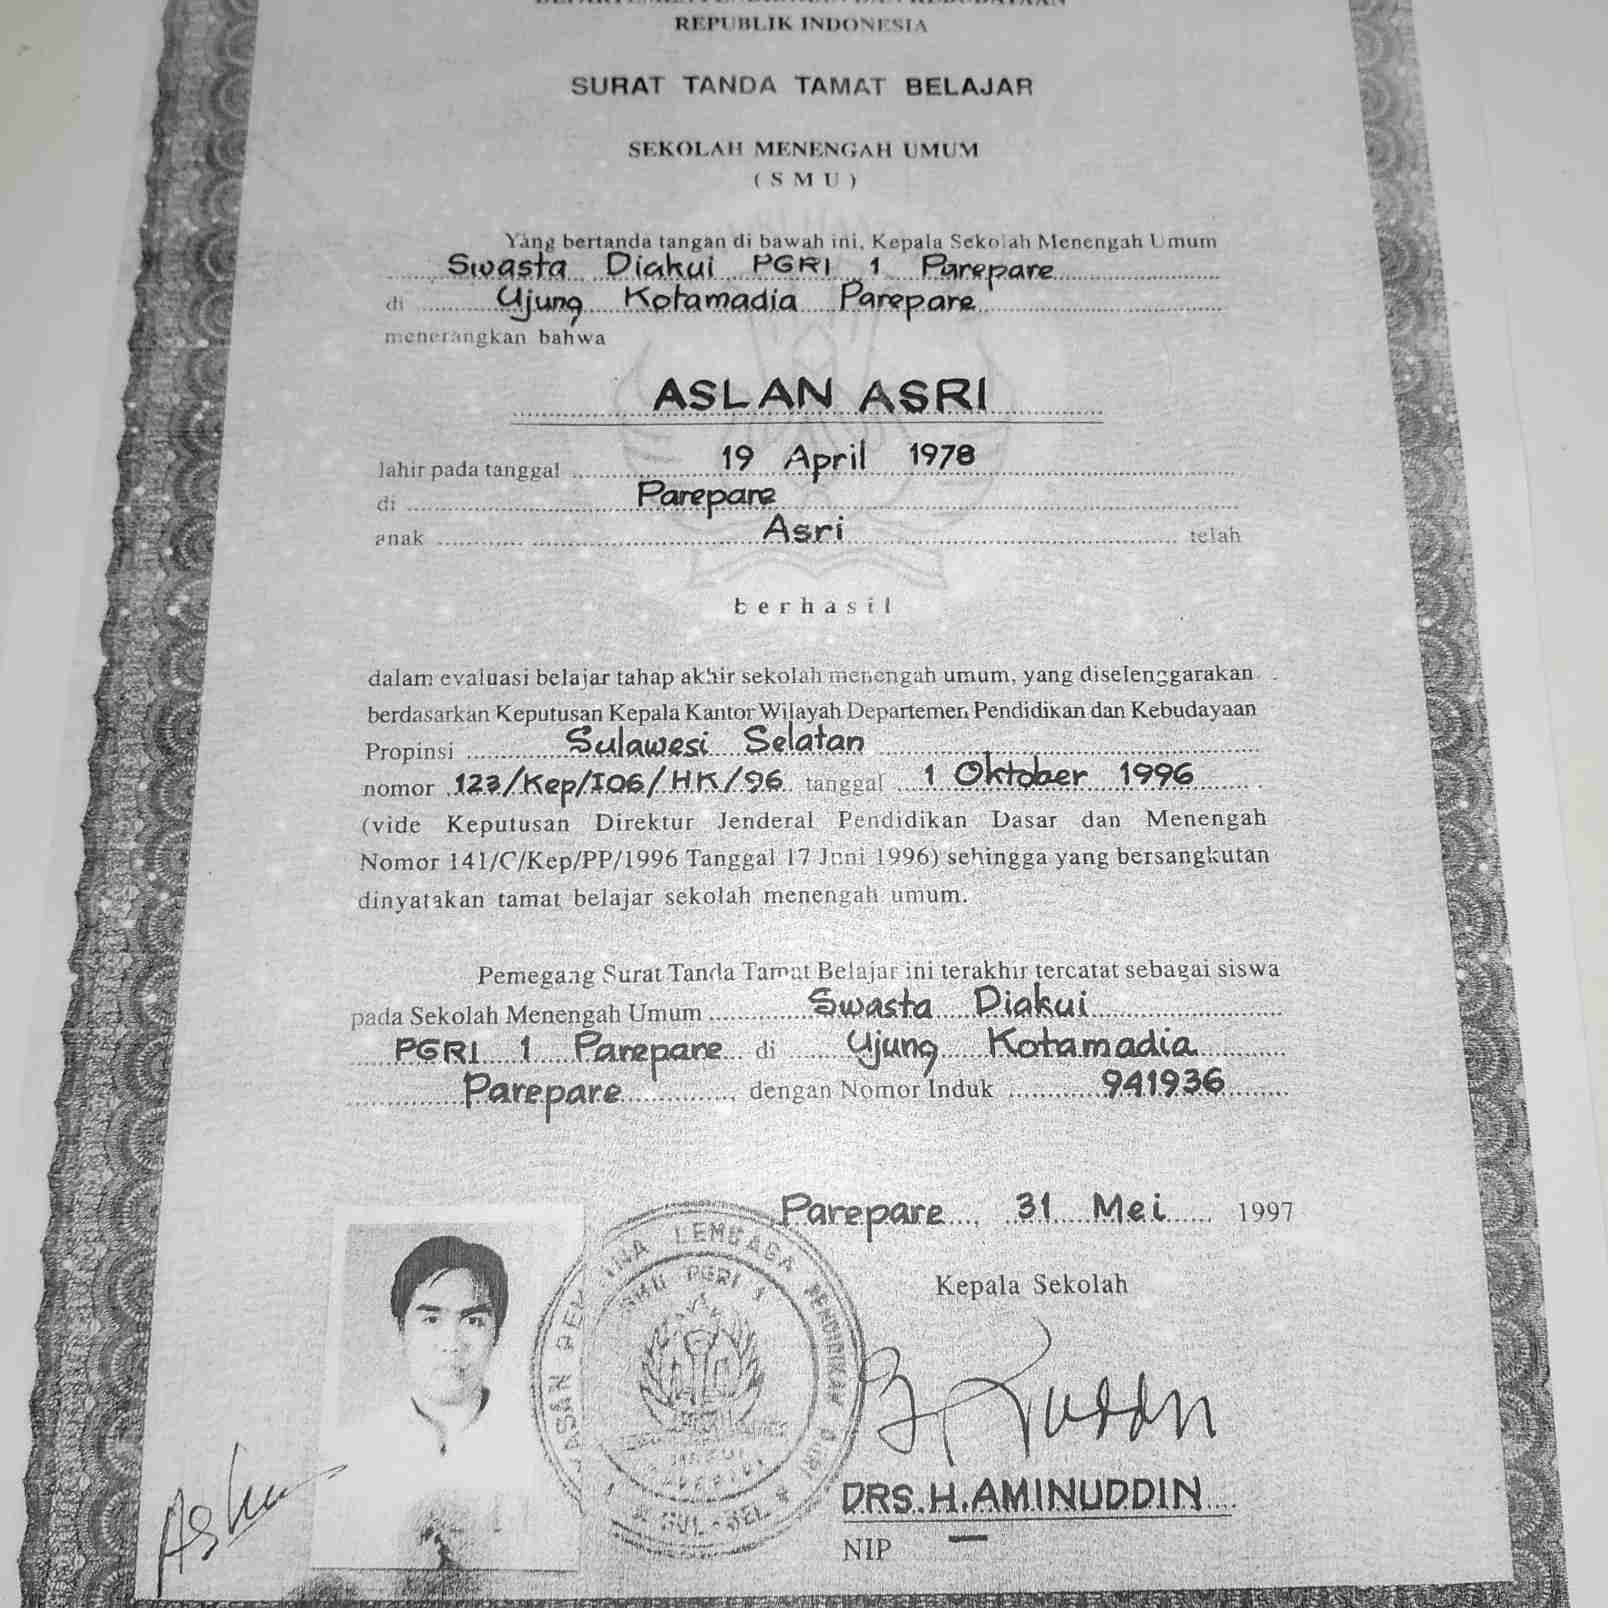 REPUBLIK INDONESIA
SURAT TANDA TAMAT BELAJAR
SEKOLAH MENENGAH UMUM
( S M U )
Yang bertanda tangan di bawah ini, Kepala Sekolah Menengah Umum
Swasta Diakui PGRI 1 Parepare
di Ujung Kotamadia Parepare
menerangkan bahwa
ASLAN ASRI
lahir pada tanggal 19 April 1978
di Parepare
anak Asri telah
berhasil
dalam evaluasi belajar tahap akhir sekolah menengah umum, yang diselenggarakan
berdasarkan Keputusan Kepala Kantor Wilayah Departemen Pendidikan dan Kebudayaan
Propinsi Sulawesi Selatan
nomor 123/Kep/I06/HK/96 tanggal 1 Oktober 1996
(vide Keputusan Direktur Jenderal Pendidikan Dasar dan Menengah
Nomor 141/C/Kep/PP/1996 Tanggal 17 Juni 1996) sehingga yang bersangkutan
dinyatakan tamat belajar sekolah menengah umum.
Pemegang Surat Tanda Tamat Belajar ini terakhir tercatat sebagai siswa
pada Sekolah Menengah Umum Swasta Diakui
PGRI 1 Parepare di Ujung Kotamadia
Parepare, dengan Nomor Induk 941936
Parepare, 31 Mei 1997
Kepala Sekolah
LEMBAGA PENDIDIKAN PGRI
SMU PGRI 1
SUL-SEL
DRS. H. AMINUDDIN
NIP —